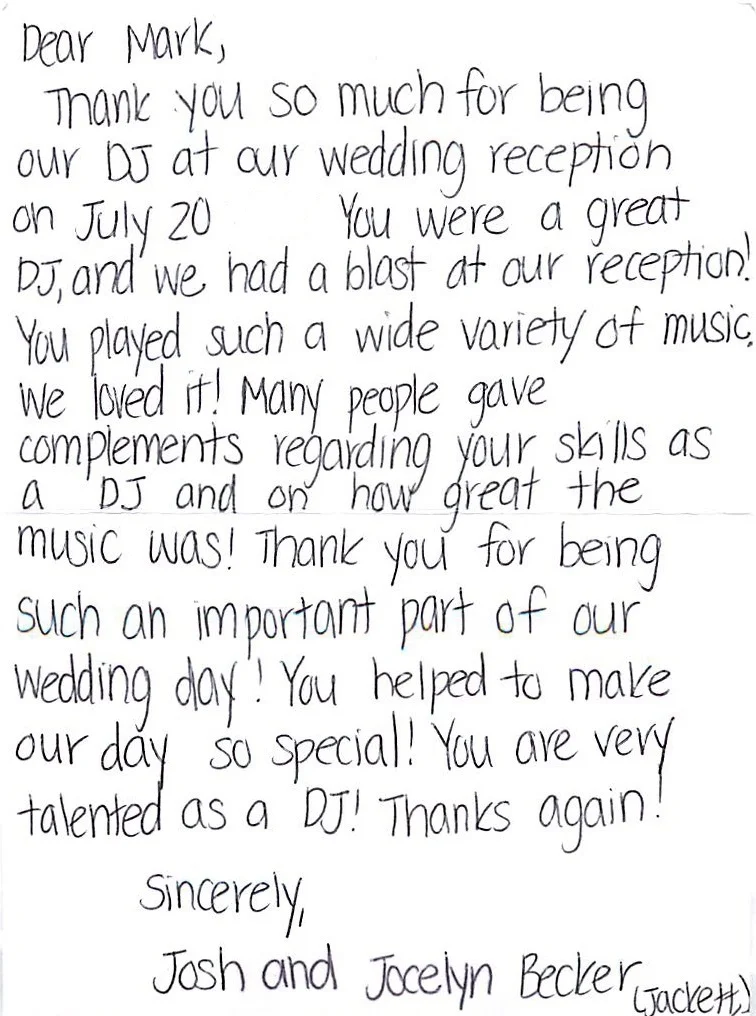 Dear Mark,
Thank you so much for being
our DJ at our wedding reception
on July 20 You were a great
DJ, and we had a blast at our reception!
You played such a wide variety of music,
we loved it! Many people gave
complements regarding your skills as
a DJ and on how great the
music was! Thank you for being
such an important part of our
wedding day! You helped to make
our day so special! You are very
talented as a DJ! Thanks again!
Sincerely,
Josh and Jocelyn Becker (Jackett)